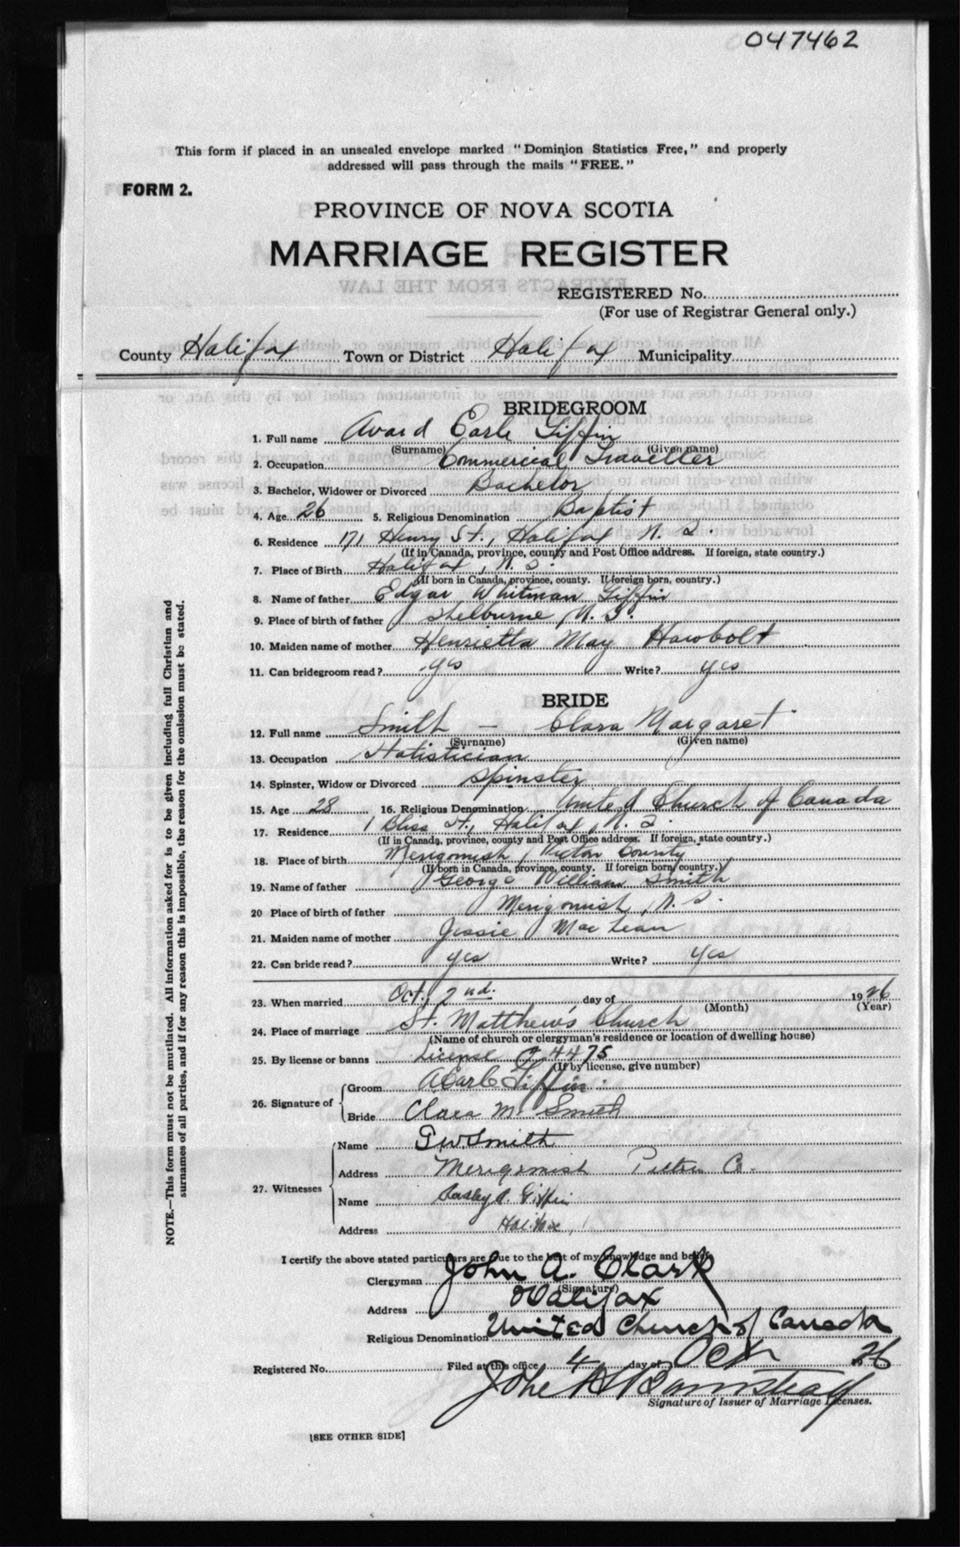 047462
This form if placed in an unsealed envelope marked "Dominion Statistics Free," and properly
addressed will pass through the mails "FREE."
FORM 2.
PROVINCE OF NOVA SCOTIA
MARRIAGE REGISTER
REGISTERED No.
(For use of Registrar General only.)
County Halifax Town or District Halifax Municipality
BRIDEGROOM
1. Full name Avard Earle Giffin
(Surname) (Given name)
2. Occupation Commercial Traveller
3. Bachelor, Widower or Divorced Bachelor
4. Age 26 5. Religious Denomination Baptist
6. Residence 171 Henry St., Halifax N. S.
(If in Canada, province, county and Post Office address. If foreign, state country.)
7. Place of Birth Halifax, N. S.
(If born in Canada, province, county. If foreign born, country.)
8. Name of father Edgar Whitman Giffin
9. Place of birth of father Shelburne, N. S.
10. Maiden name of mother Henrietta May Hawbolt
11. Can bridegroom read? yes Write? yes
BRIDE
12. Full name Smith — Clara Margaret
(Surname) (Given name)
13. Occupation Statistician
14. Spinster, Widow or Divorced Spinster
15. Age 28 16. Religious Denomination United Church of Canada
17. Residence 1 Bliss St., Halifax, N. S.
(If in Canada, province, county and Post Office address. If foreign, state country.)
18. Place of birth Merigomish, Pictou County
(If born in Canada, province, county. If foreign born, country.)
19. Name of father George William Smith
20 Place of birth of father Merigomish, N. S.
21. Maiden name of mother Jessie MacLean
22. Can bride read? yes Write? yes
23. When married Oct. 2nd. day of 1926
(Month) (Year)
24. Place of marriage St. Matthew's Church
(Name of church or clergyman's residence or location of dwelling house)
25. By license or banns License 4475
(If by license, give number)
26. Signature of Groom A Earle Giffin
Bride Clara M. Smith
27. Witnesses Name G W Smith
Address Merigomish Pictou Co.
Name Giffin
Address Halifax
I certify the above stated particulars are due to the best of my knowledge and belief
Clergyman John A. Clark
(Signature)
Address Halifax
Religious Denomination United Church of Canada
Registered No. Filed at this office 4 day of Oct 26
John H Barnstead
Signature of Issuer of Marriage Licenses.
[SEE OTHER SIDE]
NOTE.—This form must not be mutilated. All information asked for is to be given including full Christian and
surnames of all parties, and if for any reason this is impossible, the reason for the omission must be stated.